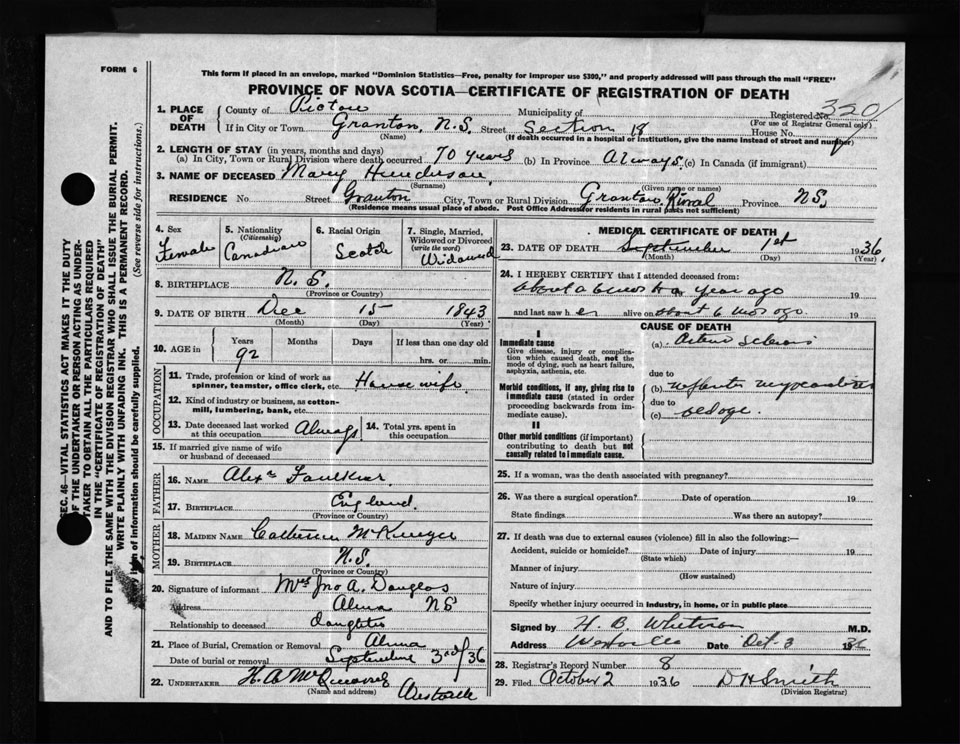 FORM 6
This form if placed in an envelope, marked "Dominion Statistics—Free, penalty for improper use $300," and properly addressed will pass through the mail "FREE"
PROVINCE OF NOVA SCOTIA—CERTIFICATE OF REGISTRATION OF DEATH
1. PLACE OF DEATH County of Pictou Municipality of Registered No. 320
(For use of Registrar General only)
If in City or Town Granton, N.S. Street Section 18 House No.
(Name) (If death occurred in a hospital or institution, give the name instead of street and number)
2. LENGTH OF STAY (in years, months and days)
(a) In City, Town or Rural Division where death occurred 70 years (b) In Province Always (c) In Canada (if immigrant)
3. NAME OF DECEASED Mary Henderson
(Surname) (Given name or names)
RESIDENCE No Street Granton City, Town or Rural Division Granton Rural Province N.S.
(Residence means usual place of abode. Post Office Address for residents in rural parts not sufficient)
4. Sex Female
5. Nationality (Citizenship) Canadian
6. Racial Origin Scotch
7. Single, Married, Widowed or Divorced (write the word) Widowed
8. BIRTHPLACE N.S.
(Province or Country)
9. DATE OF BIRTH Dec 15 1843
(Month) (Day) (Year)
10. AGE in Years 92 Months Days If less than one day old
hrs. or min.
OCCUPATION
11. Trade, profession or kind of work as spinner, teamster, office clerk, etc. House wife
12. Kind of industry or business, as cotton-mill, lumbering, bank, etc.
13. Date deceased last worked at this occupation Always 14. Total yrs. spent in this occupation
15. If married give name of wife or husband of deceased
FATHER
16. NAME Alex Faulkner
17. BIRTHPLACE England
(Province or Country)
MOTHER
18. MAIDEN NAME Catherine
19. BIRTHPLACE N.S.
(Province or Country)
20. Signature of informant Mrs Jno A. Douglas
Address Alma NS
Relationship to deceased daughter
21. Place of Burial, Cremation or Removal Alma
Date of burial or removal September 3rd/36
22. UNDERTAKER H. A.
(Name and address) Westville
MEDICAL CERTIFICATE OF DEATH
23. DATE OF DEATH September 1st 1936
(Month) (Day) (Year)
24. I HEREBY CERTIFY that I attended deceased from:
about a year ago 19
and last saw her alive on about 6 mos ago 19
CAUSE OF DEATH
I
Immediate cause
Give disease, injury or complication which caused death, not the mode of dying, such as heart failure, asphyxia, asthenia, etc.
(a)
due to
Morbid conditions, if any, giving rise to immediate cause (stated in order proceeding backwards from immediate cause).
(b)
due to
(c) old age.
II
Other morbid conditions (if important) contributing to death but not causally related to immediate cause.
25. If a woman, was the death associated with pregnancy?
26. Was there a surgical operation? Date of operation 19
State findings Was there an autopsy?
27. If death was due to external causes (violence) fill in also the following:—
Accident, suicide or homicide? Date of injury 19
(State which)
Manner of injury
(How sustained)
Nature of injury
Specify whether injury occurred in industry, in home, or in public place
Signed by H. B. Whitman M.D.
Address Westville Date Oct. 3 1936
28. Registrar's Record Number 8
29. Filed October 2 1936 D H Smith
(Division Registrar)
SEC. 46—VITAL STATISTICS ACT MAKES IT THE DUTY
OF THE UNDERTAKER OR PERSON ACTING AS UNDERTAKER TO OBTAIN ALL THE PARTICULARS REQUIRED
IN THE "CERTIFICATE OF REGISTRATION OF DEATH"
AND TO FILE THE SAME WITH THE DIVISION REGISTRAR WHO SHALL ISSUE THE BURIAL PERMIT.
WRITE PLAINLY WITH UNFADING INK. THIS IS A PERMANENT RECORD.
item of information should be carefully supplied. (See reverse side for instructions.)